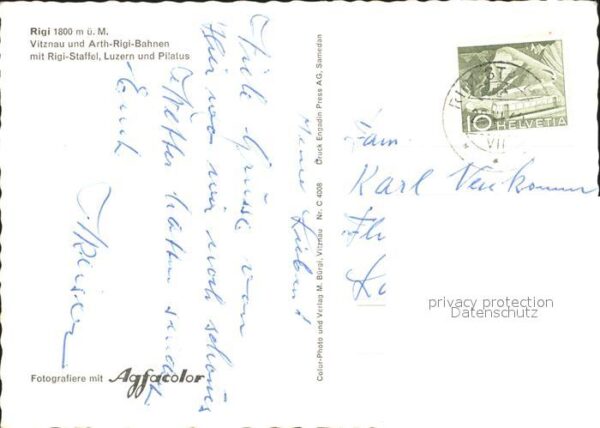 Rigi 1800 m ü. M.
Vitznau und Arth-Rigi-Bahnen
mit Rigi-Staffel, Luzern und Pilatus
Meine Lieben!
Viele Grüsse von
hier wo wir noch schönes
Wetter hatten senden
Euch
Fotografiere mit Agfacolor
Color-Photo und Verlag M. Bürgi, Vitznau Nr. C 4008 Druck Engadin Press AG, Samedan
10 HELVETIA
VII
Fam.
Karl
privacy protection
Datenschutz